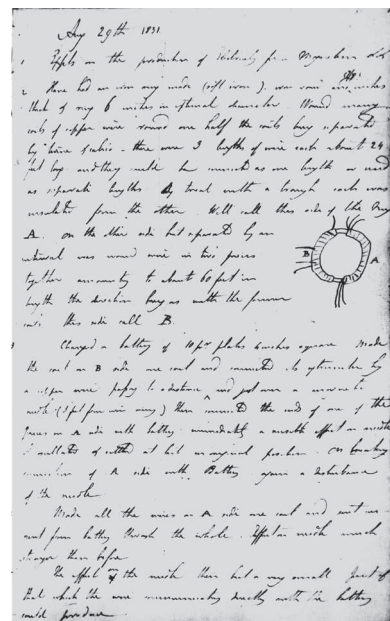 Aug 29th 1831
1 Expts on the production of Electricity from Magnetism &c &c
2 Have had an iron ring made (soft iron), iron round and 7/8 inches
thick & ring 6 inches in external diameter. Wound many
coils of copper wire round one half the coils being separated
by twine & calico - there were 3 lengths of wire each about 24
feet long and they could be connected as one length or used
as separate lengths. By trial with a trough each was
insulated from the other. Will call this side of the Ring
A. on the other side but separated by an
interval was wound wire in two pieces
together amounting to about 60 feet in
length the direction being as with the former
coils this side call B.
B A
3 Charged a battery of 10 pr plates 4 inches square. Made
the coil on B side one coil and connected its extremities by
a copper wire passing to a distance and just over a magnetic
needle (3 feet from iron ring) then connected the ends of one of the
pieces on A side with battery immediately a sensible effect on needle
it oscillated & settled at last in original position. On breaking
connection of A side with Battery again a disturbance
of the needle
Made all the wires on A side one coil and sent
current from battery through the whole. Effect on needle much
stronger than before
The effect on the needle then but a very small part of
that which the wire communicating directly with the battery
could produce